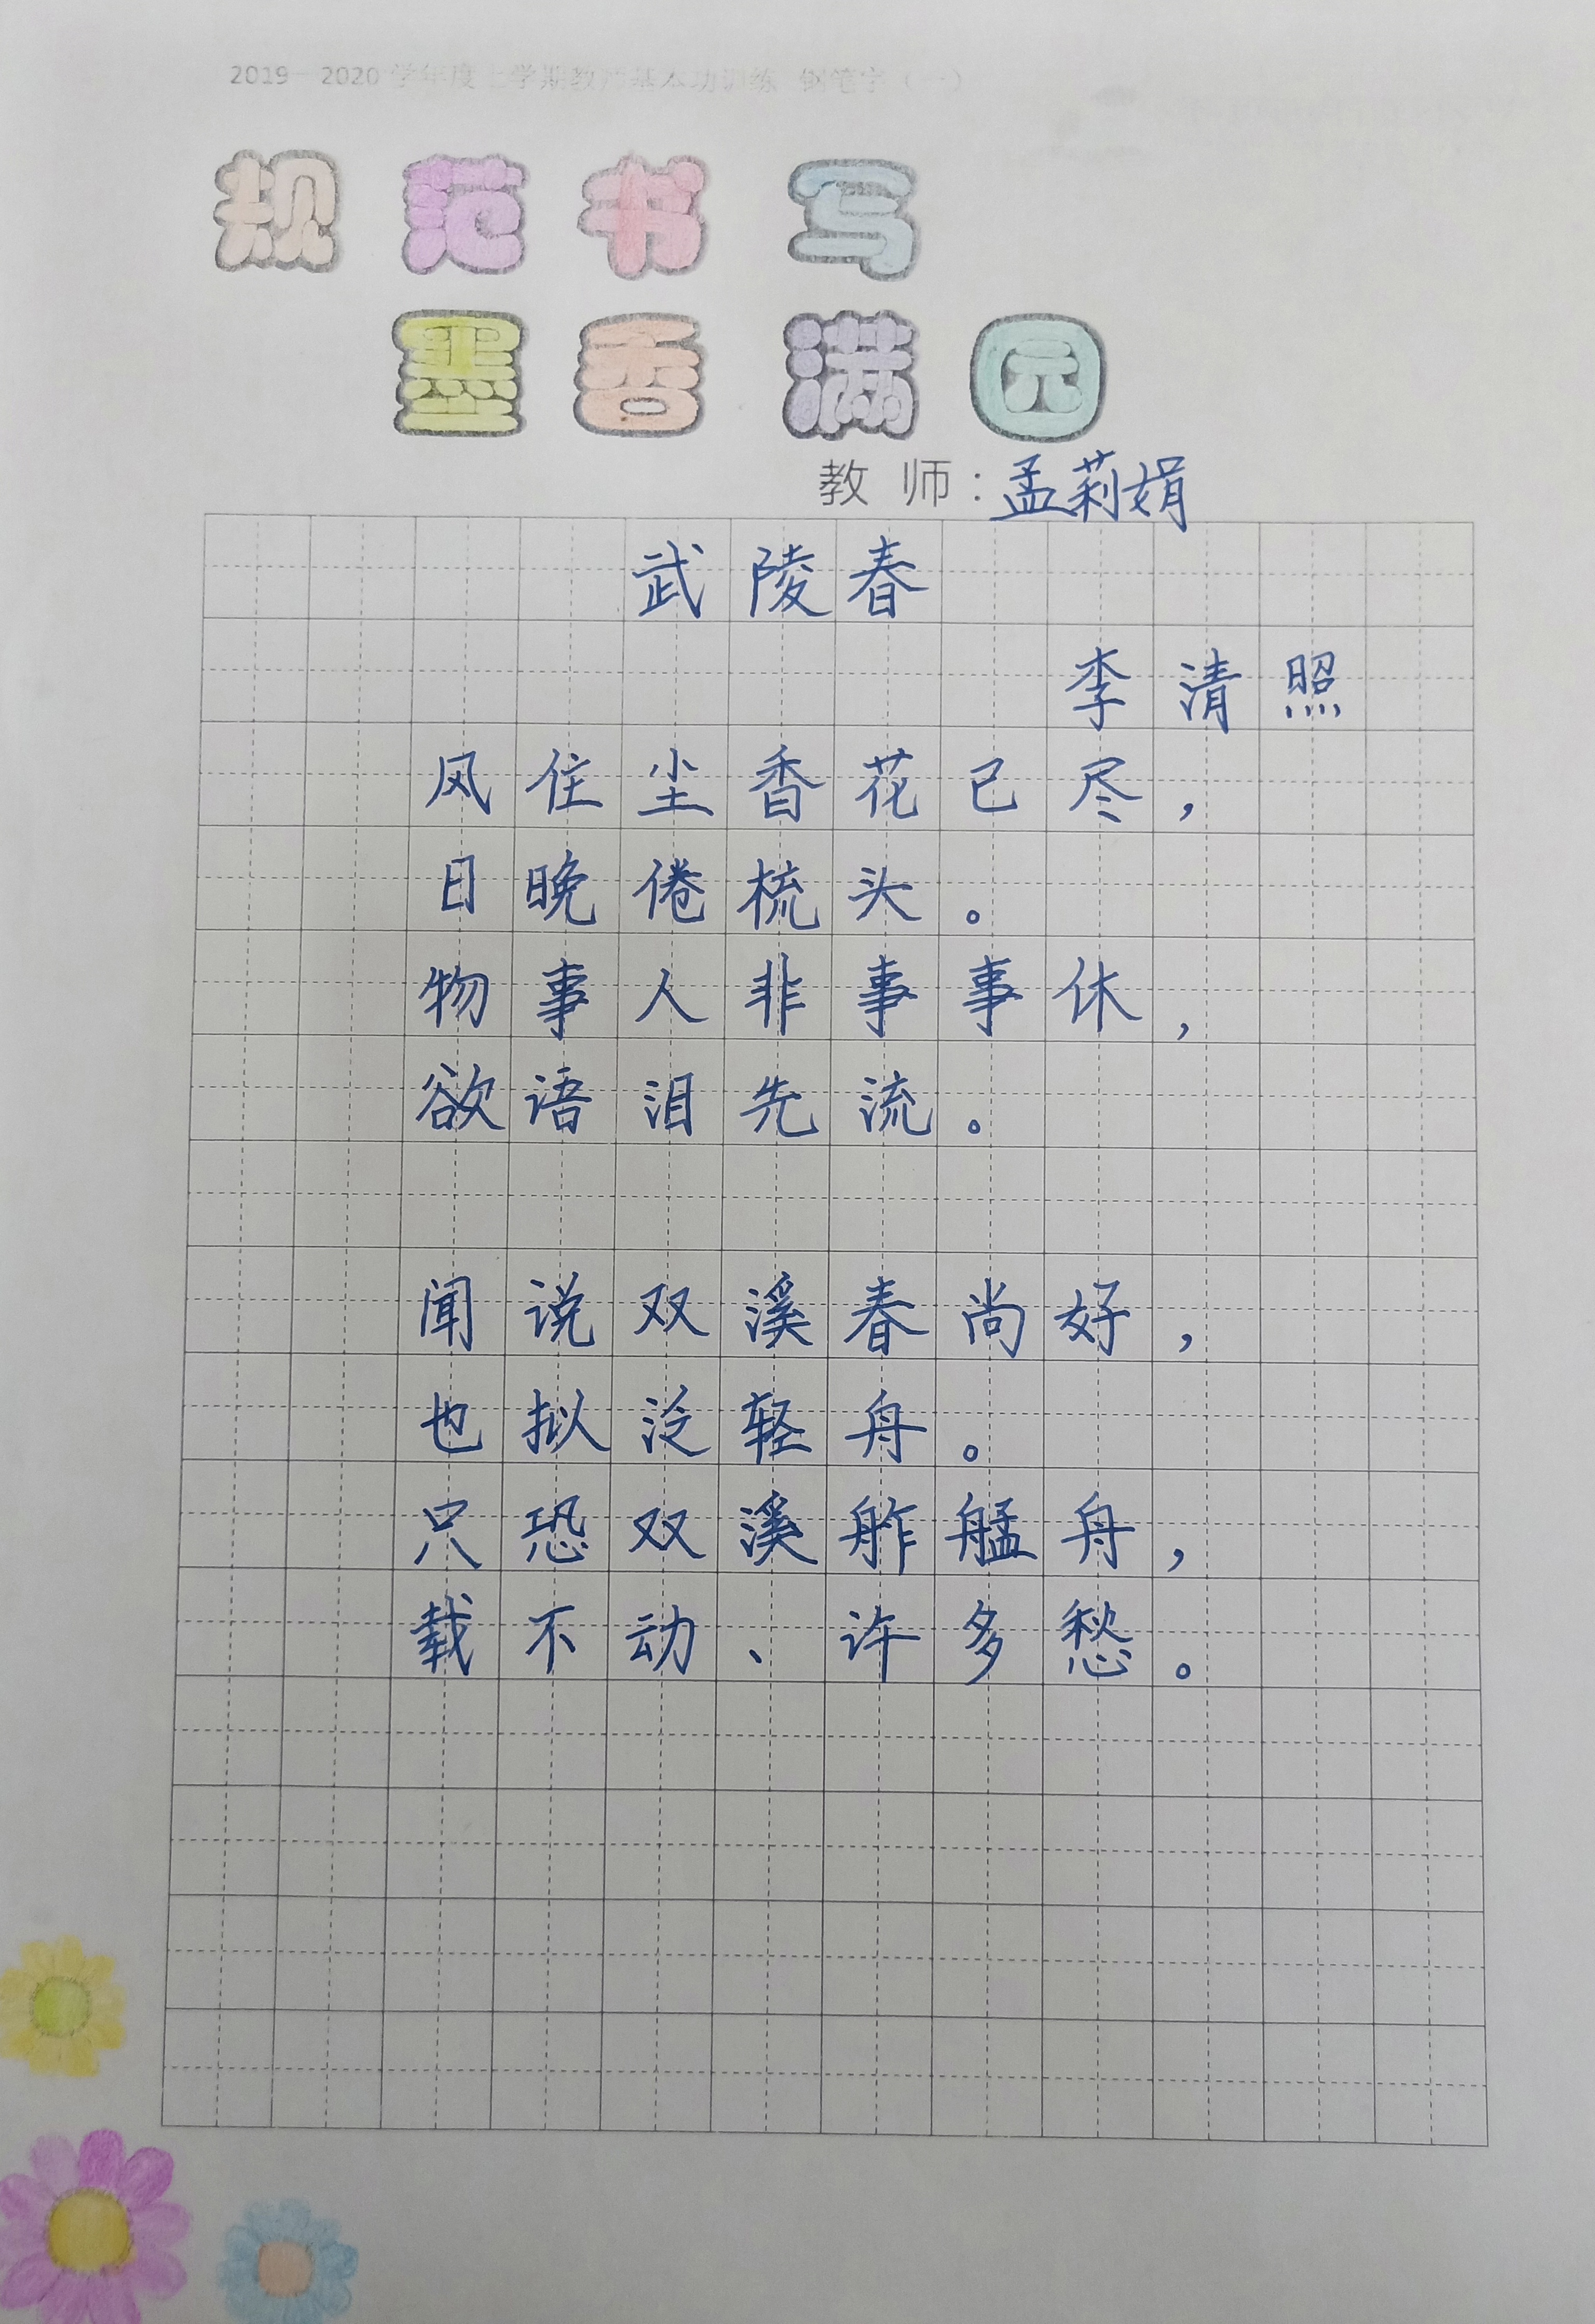 2019—2020 学年度上学期教师基本功训练 钢笔字（一）
规范书写
墨香满园
教 师：孟莉娟
武陵春
李清照
风住尘香花已尽，
日晚倦梳头。
物事人非事事休，
欲语泪先流。
闻说双溪春尚好，
也拟泛轻舟。
只恐双溪舴艋舟，
载不动、许多愁。